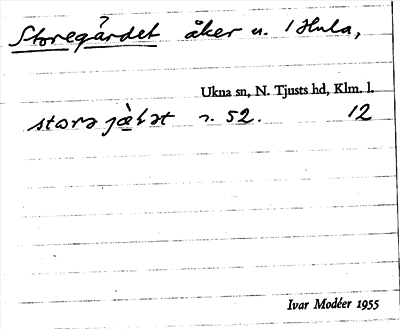 Storegärdet åker u. 1 Hula,
Ukna sn, N. Tjusts hd, Klm. l.
r. 52. 12
Ivar Modéer 1955